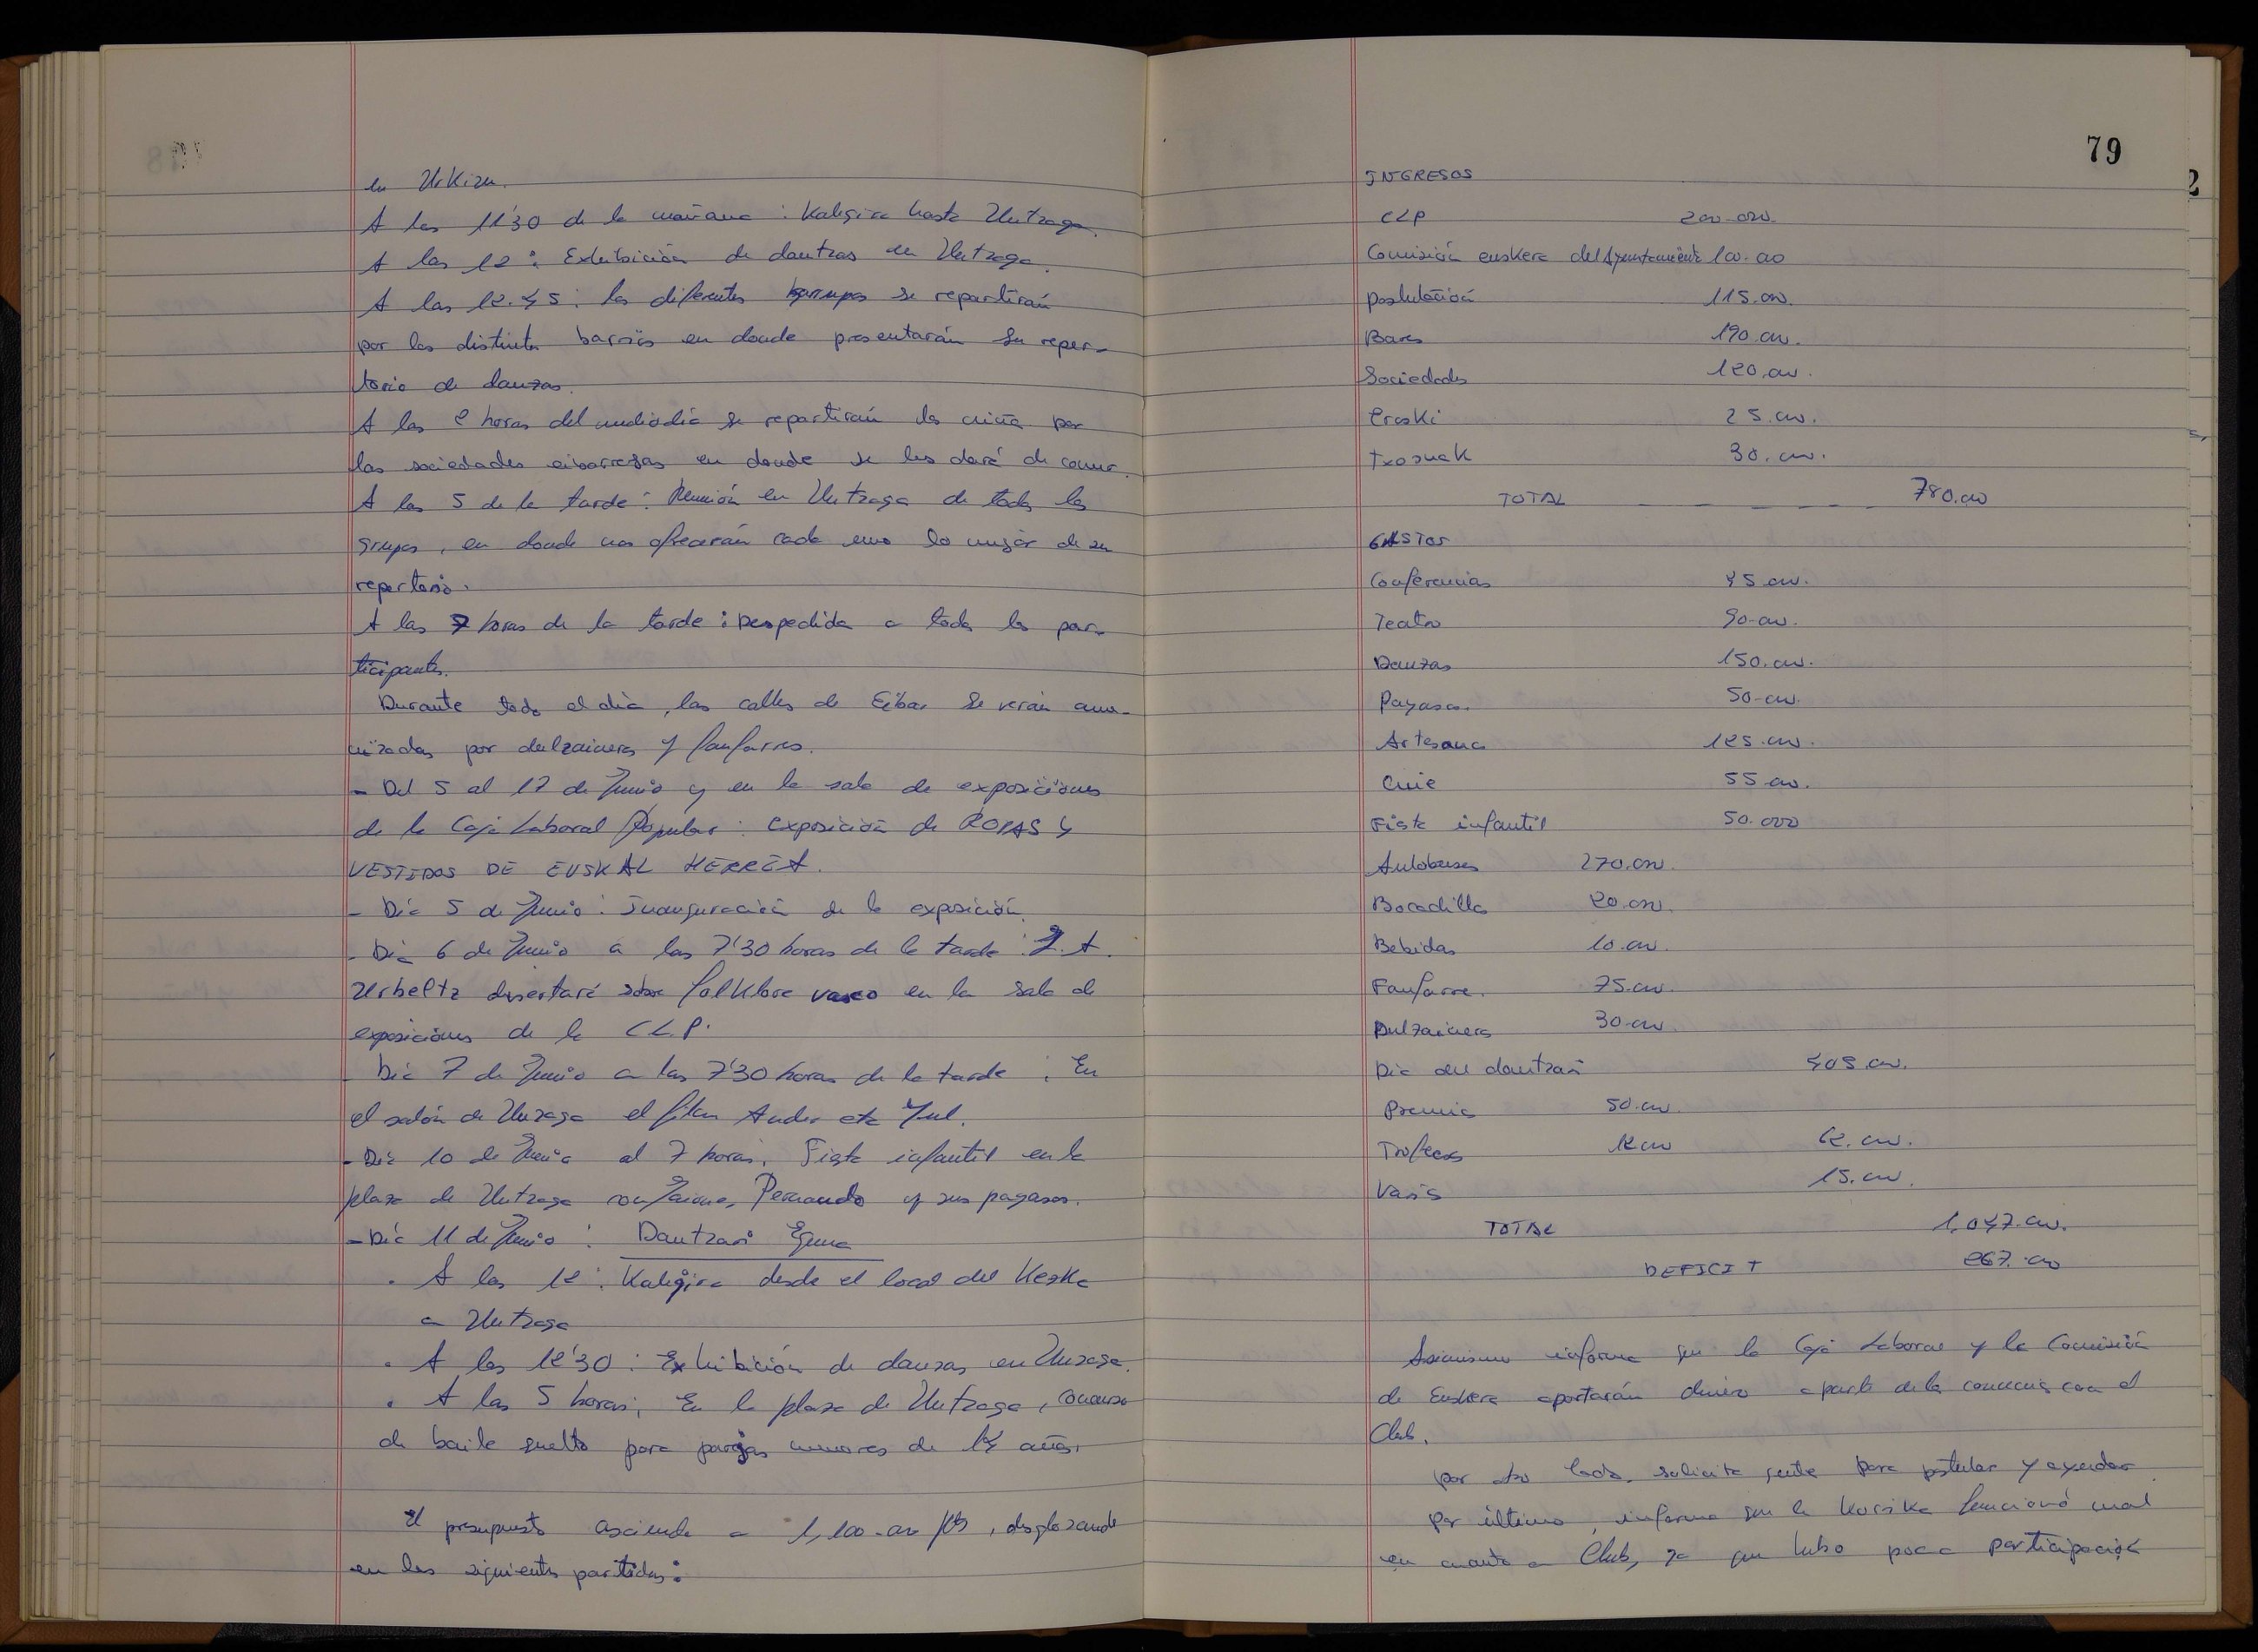 en Urkizu.
A las 11'30 de la mañana: Kalegira hasta Untzaga.
A las 12: Exhibición de dantzas en Untzaga.
A las 12.45: los diferentes grupos se repartirán
por los distintos barrios en donde presentarán su reper-
torio de danzas.
A las 2 horas del mediodía se repartirán los por
las sociedades eibarresas en donde se les dará de comer.
A las 5 de la tarde: Reunión en Untzaga de todos los
grupos, en donde nos ofrecerán cada uno lo mejor de su
repertorio.
A las 7 horas de la tarde: Despedida a todos los par-
ticipantes.
Durante todo el día, las calles de Eibar se verán ame-
nizadas por dulzaineros y fanfarres.
- Del 5 al 17 de Junio y en la sala de exposiciones
de la Caja Laboral Popular: exposición de ROPAS Y
VESTIDOS DE EUSKAL HERRIA.
- Día 5 de Junio: Inauguración de la exposición.
- Día 6 de Junio a las 7'30 horas de la tarde: J.A.
Urbeltz disertará sobre folklore vasco en la sala de
exposiciones de la CLP.
- Día 7 de Junio a las 7'30 horas de la tarde: En
el salón de Unzaga el film Ander eta Yul.
- Día 10 de Junio al 7 horas. Fiesta infantil en la
plaza de Untzaga con Jaione, Pernando y sus payasos.
- Día 11 de Junio: Dantzari Eguna
. A las 12: Kalegira desde el local del Kezka
a Untzaga
. A las 12'30: Exhibición de danzas en Unzaga.
. A las 5 horas: En la plaza de Untzaga, concurso
de baile suelto para parejas menores de 14 años.
El presupuesto asciende a 1,100.000 pts, desglosando
en las siguientes partidas:
79
INGRESOS
CLP 200.000.
Comisión euskera del Ayuntamiento 100.000
Postulación 115.000.
Bares 190.000.
Sociedades 120.000.
Eroski 25.000.
Txosnak 30.000.
TOTAL - - - - - - 780.000
GASTOS
Conferencias 45.000.
Teatro 90.000.
Danzas 150.000.
Payasos. 50.000.
Artesanía 125.000.
Cine 55.000.
Fiesta infantil 50.000
Autobuses 270.000.
Bocadillos 20.000.
Bebidas 10.000.
Fanfarre. 75.000.
Dulzaineros 30.000.
Día del dantzari 405.000.
Premios 50.000.
Trofeos 12.000 62.000.
Varios 15.000.
TOTAL 1,047.000.
DEFICIT 267.000
Asimismo informa que la Caja Laboral y la Comisión
de Euskera aportarán dinero aparte de lo con el
Club.
Por otro lado, solicita gente para postular y ayudar.
Por último, informa que la Korrika funcionó mal
en cuanto a Club, ya que hubo poca participación